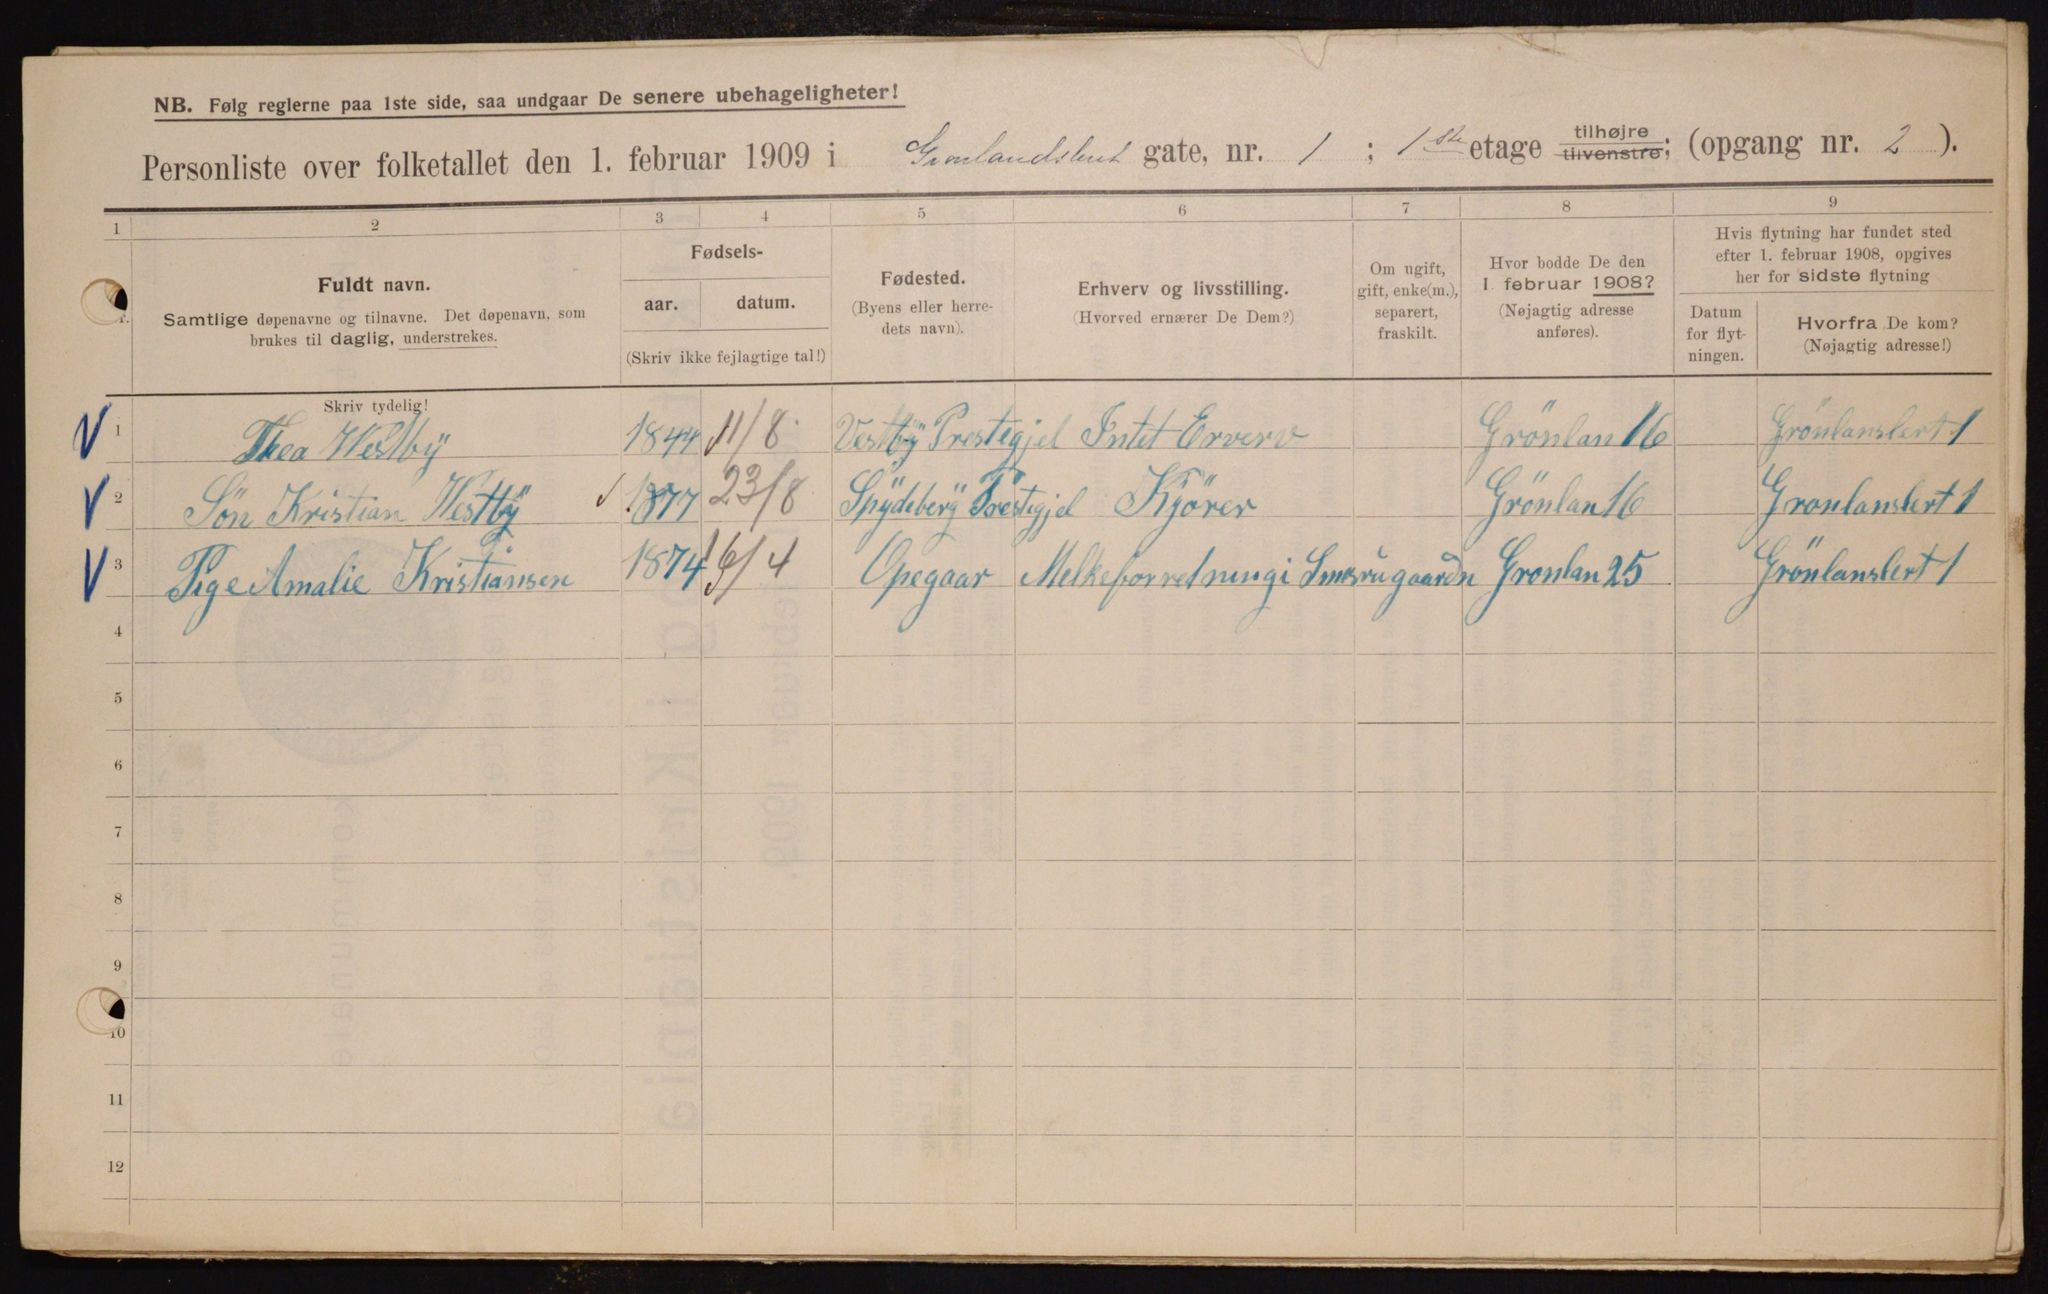 NB. Følg reglerne paa 1ste side, saa undgaar De senere ubehageligheter!
Personliste over folketallet den 1. februar 1909 i Grønlandsleret gate, nr. 1 ; 1ste etage tilhøjre tilvenstre; (opgang nr. 2 ).
1 2 3 4 5 6 7 8 9
Fuldt navn.
Samtlige døpenavne og tilnavne. Det døpenavn, som
brukes til daglig, understrekes.
Skriv tydelig!
Fødsels-
aar. datum.
(Skriv ikke fejlagtige tal!)
Fødested.
(Byens eller herre-
dets navn).
Erhverv og livsstilling.
(Hvorved ernærer De Dem?)
Om ugift,
gift, enke(m.),
separert,
fraskilt.
Hvor bodde De den
1. februar 1908?
(Nøjagtig adresse
anføres).
Hvis flytning har fundet sted
efter 1. februar 1908, opgives
her for sidste flytning
Datum
for flyt-
ningen.
Hvorfra De kom?
(Nøjagtig adresse!)
1 Thea Westby 1844 11/8 Vestby Prestegjel Intet Erverv Grönlan 16 Grönlanslert 1
2 Sön Kristian Westby 1877 23/8 Spydeberg Prestegjel Kjörer Grönlan 16 Gronlanslert 1
3 Pige Amalie Kristiansen 1874 16/4 Opegaar Melkeforretning i Gronlan 25 Grönlanslert 1
4
5
6
7
8
9
10
11
12